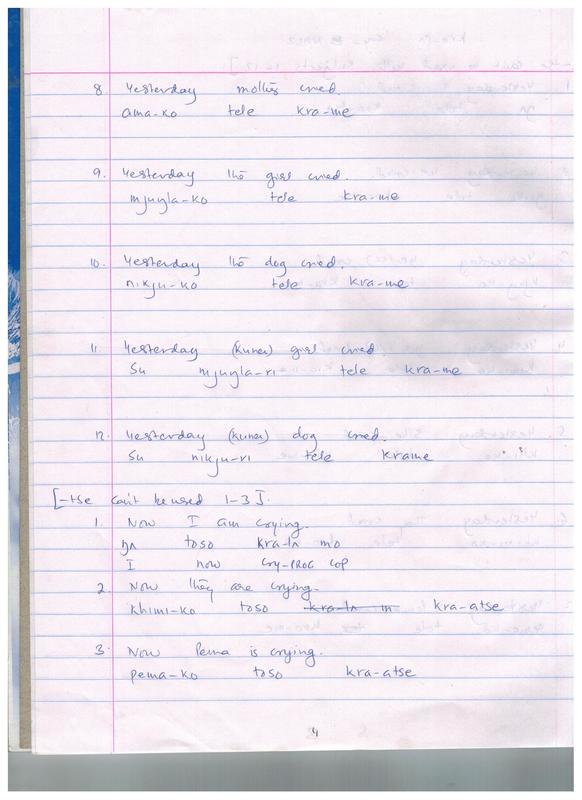 8. Yesterday mother cried.
ama-ko tele kra-me
9. Yesterday the girl cried.
mjuŋla-ko tele kra-me
10. Yesterday the dog cried.
nikju-ko tele kra-me
11. Yesterday (kunex) girl cried.
Su mjuŋla-ri tele kra-me
12. Yesterday (kunex) dog cried.
Su nikju-ri tele krame
[-tse can't be used 1-3].
1. Now I am crying.
ŋʌ toso kra-tʌ mo
I now cry-PROG COP
2. Now they are crying.
khimi-ko toso kra-tʌ m kra-atse
3. Now Pema is crying.
pema-ko toso kra-atse
4